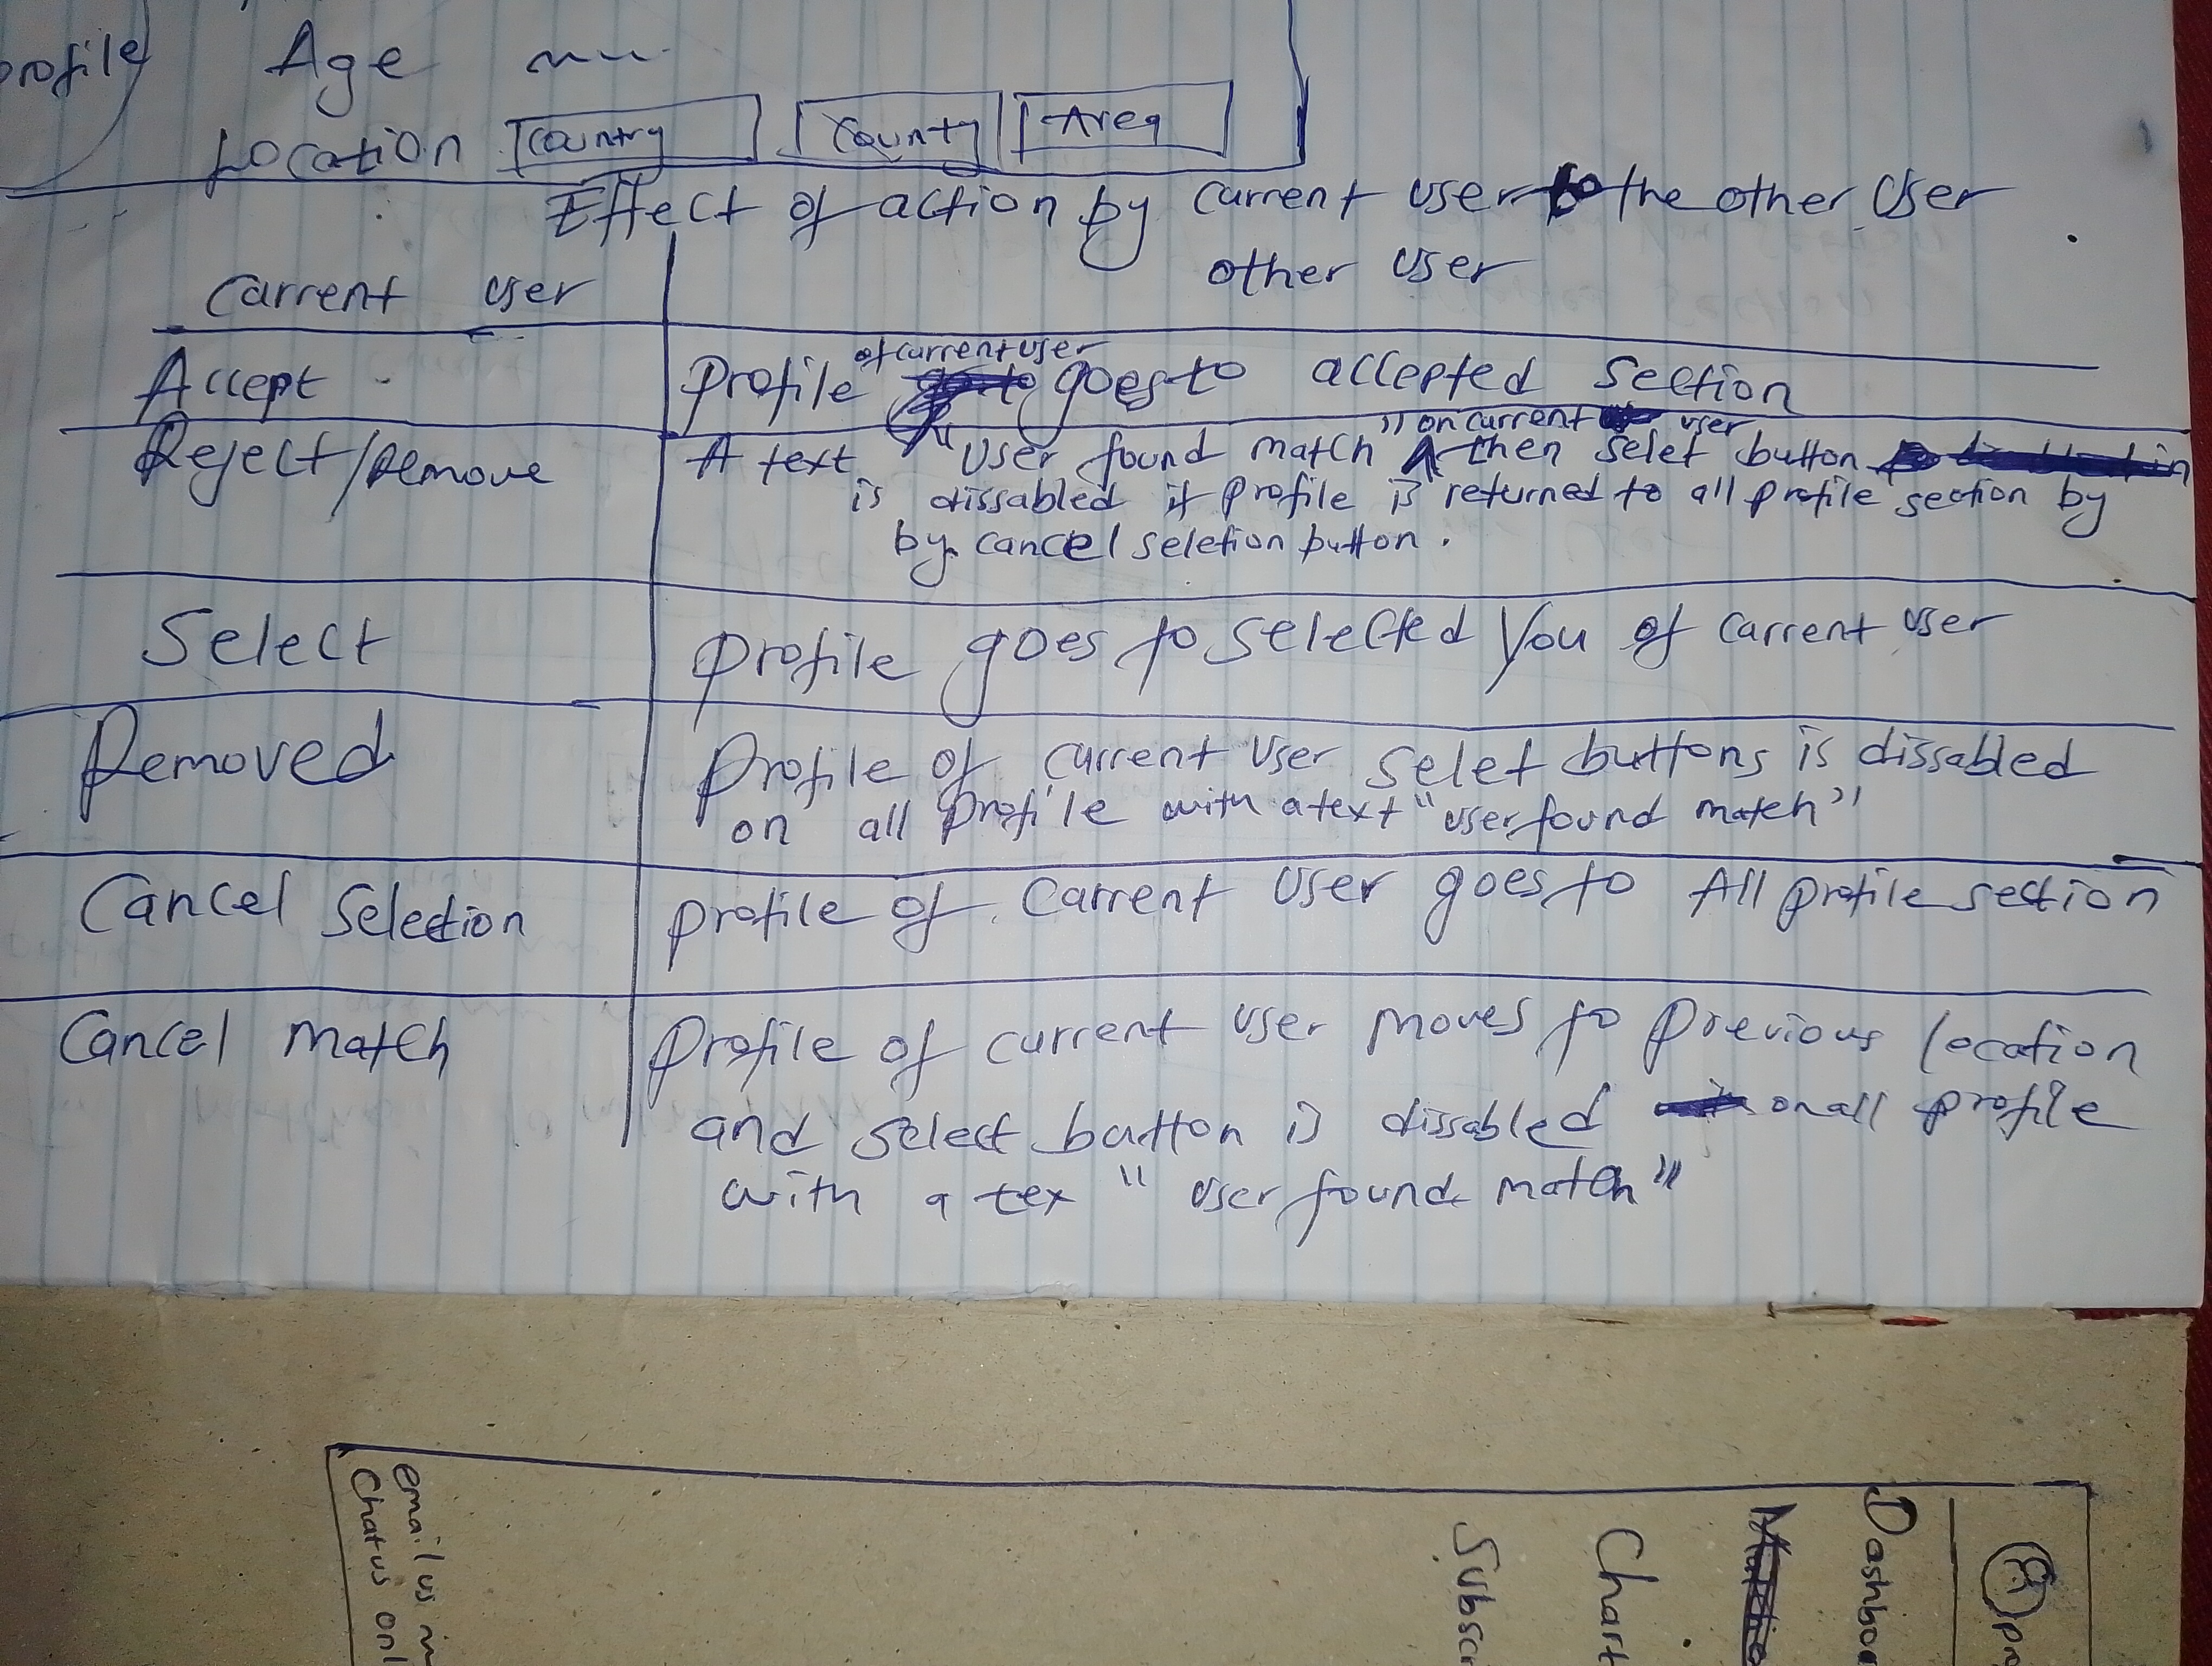 profile Age
Location Country County Area
Effect of action by current user to the other user
Current user
other user
Accept
Profile of current user goes to accepted section
Reject/Remove
A text "User found match" on current user then selet button
is dissabled if profile is returned to all profile section by
by cancel seletion button.
Select
profile goes to selected You of current user
Removed
Profile of current user selet buttons is dissabled
on all profile with a text "user found match"
Cancel Selection
profile of current user goes to All profile section
Cancel match
Profile of current user moves to previous location
and select button is dissabled on all profile
with a tex "user found match"
Dashboa
Chart
Subscr
email us
Chat us onl